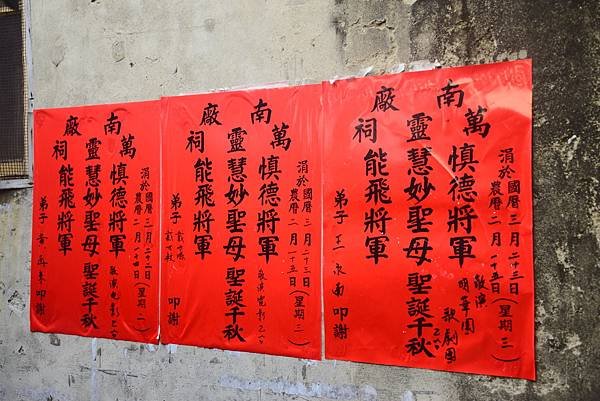 萬南廠祠
涓於國曆三月二十三日
農曆二月十五日(星期三)
敬演
明華園
歌劇團乙台
慎德將軍
靈慧妙聖母 聖誕千秋
能飛將軍
弟子 王永南 叩謝
萬南廠祠
涓於國曆三月二十三日
農曆二月十五日(星期三)
敬演電影乙台
慎德將軍
靈慧妙聖母 聖誕千秋
能飛將軍
弟子 叩謝
萬南廠祠
涓於國曆三月二十二日
農曆二月十四日(星期二)
敬演電影乙台
慎德將軍
靈慧妙聖母 聖誕千秋
能飛將軍
弟子 叩謝